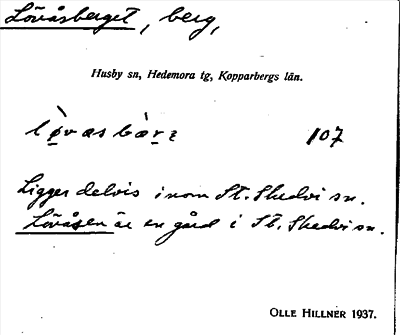 Lövåsberget, berg,
Husby sn, Hedemora tg, Kopparbergs län.
107
Ligger delvis inom St. Skedvi sn.
Lövåsen är en gård i St. Skedvi sn.
OLLE HILLNER 1937.